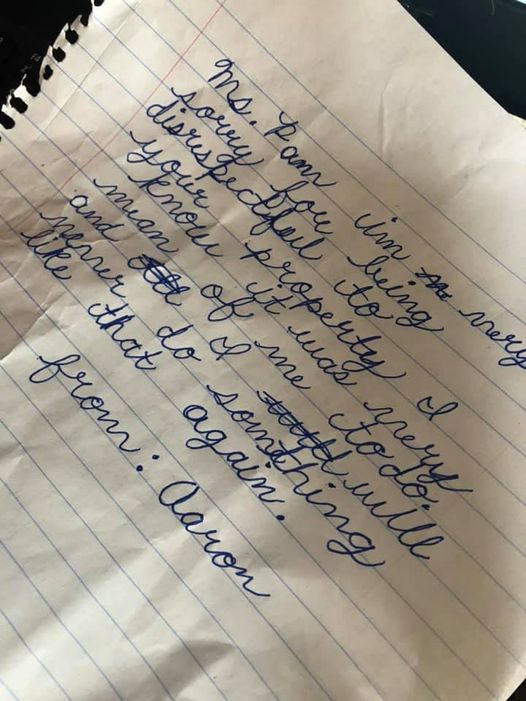 Ms. Pam im very
sorry for being
disrespectful to
your property I
know it was very
mean of me to do.
and I will
never do something
like that again.
from: Aaron